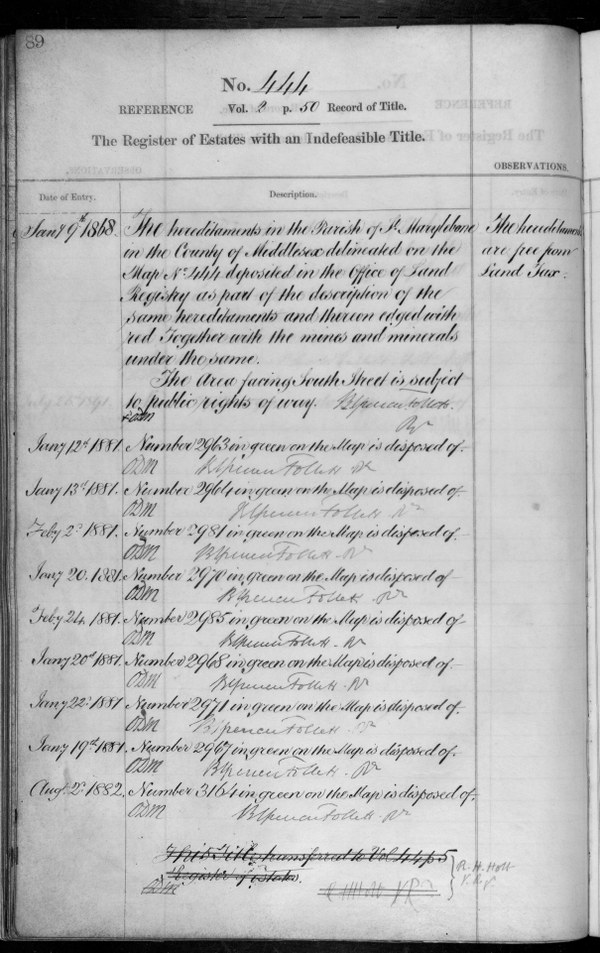 89
No. 444
REFERENCE Vol. 2 p. 50 Record of Title.
The Register of Estates with an Indefeasible Title.
OBSERVATIONS.
Date of Entry. Description.
Jany 9th 1868. The hereditaments in the Parish of St Marylebone
in the County of Middlesex delineated on the
Map No. 444 deposited in the Office of Land
Registry as part of the description of the
same hereditaments and thereon edged with
red Together with the mines and minerals
under the same.
The hereditaments
are free from
Land Tax.
The Area facing South Street is subject
to public rights of way. B Spencer Follett.
Rr
ODM
Jany 12th 1881. Number 2963 in green on the Map is disposed of.
ODM B Spencer Follett Rr
Jany 13th 1881. Number 2964 in green on the Map is disposed of.
ODM B Spencer Follett Rr
Feby 2d 1881. Number 2981 in green on the Map is disposed of.
ODM B Spencer Follett Rr
Jany 20. 1881. Number 2970 in green on the Map is disposed of.
ODM B Spencer Follett Rr
Feby 24. 1881. Number 2985 in green on the Map is disposed of.
ODM B Spencer Follett Rr
Jany 20th 1881. Number 2968 in green on the Map is disposed of.
ODM B Spencer Follett Rr
Jany 22d 1881. Number 2971 in green on the Map is disposed of.
ODM B Spencer Follett Rr
Jany 19th 1881. Number 2967 in green on the Map is disposed of.
ODM B Spencer Follett Rr
Augt 2d 1882. Number 3164 in green on the Map is disposed of.
ODM B Spencer Follett Rr
This Title transferred to Vol 44 p 5
Register of Estates.
ODM R H Holt
R. H. Holt